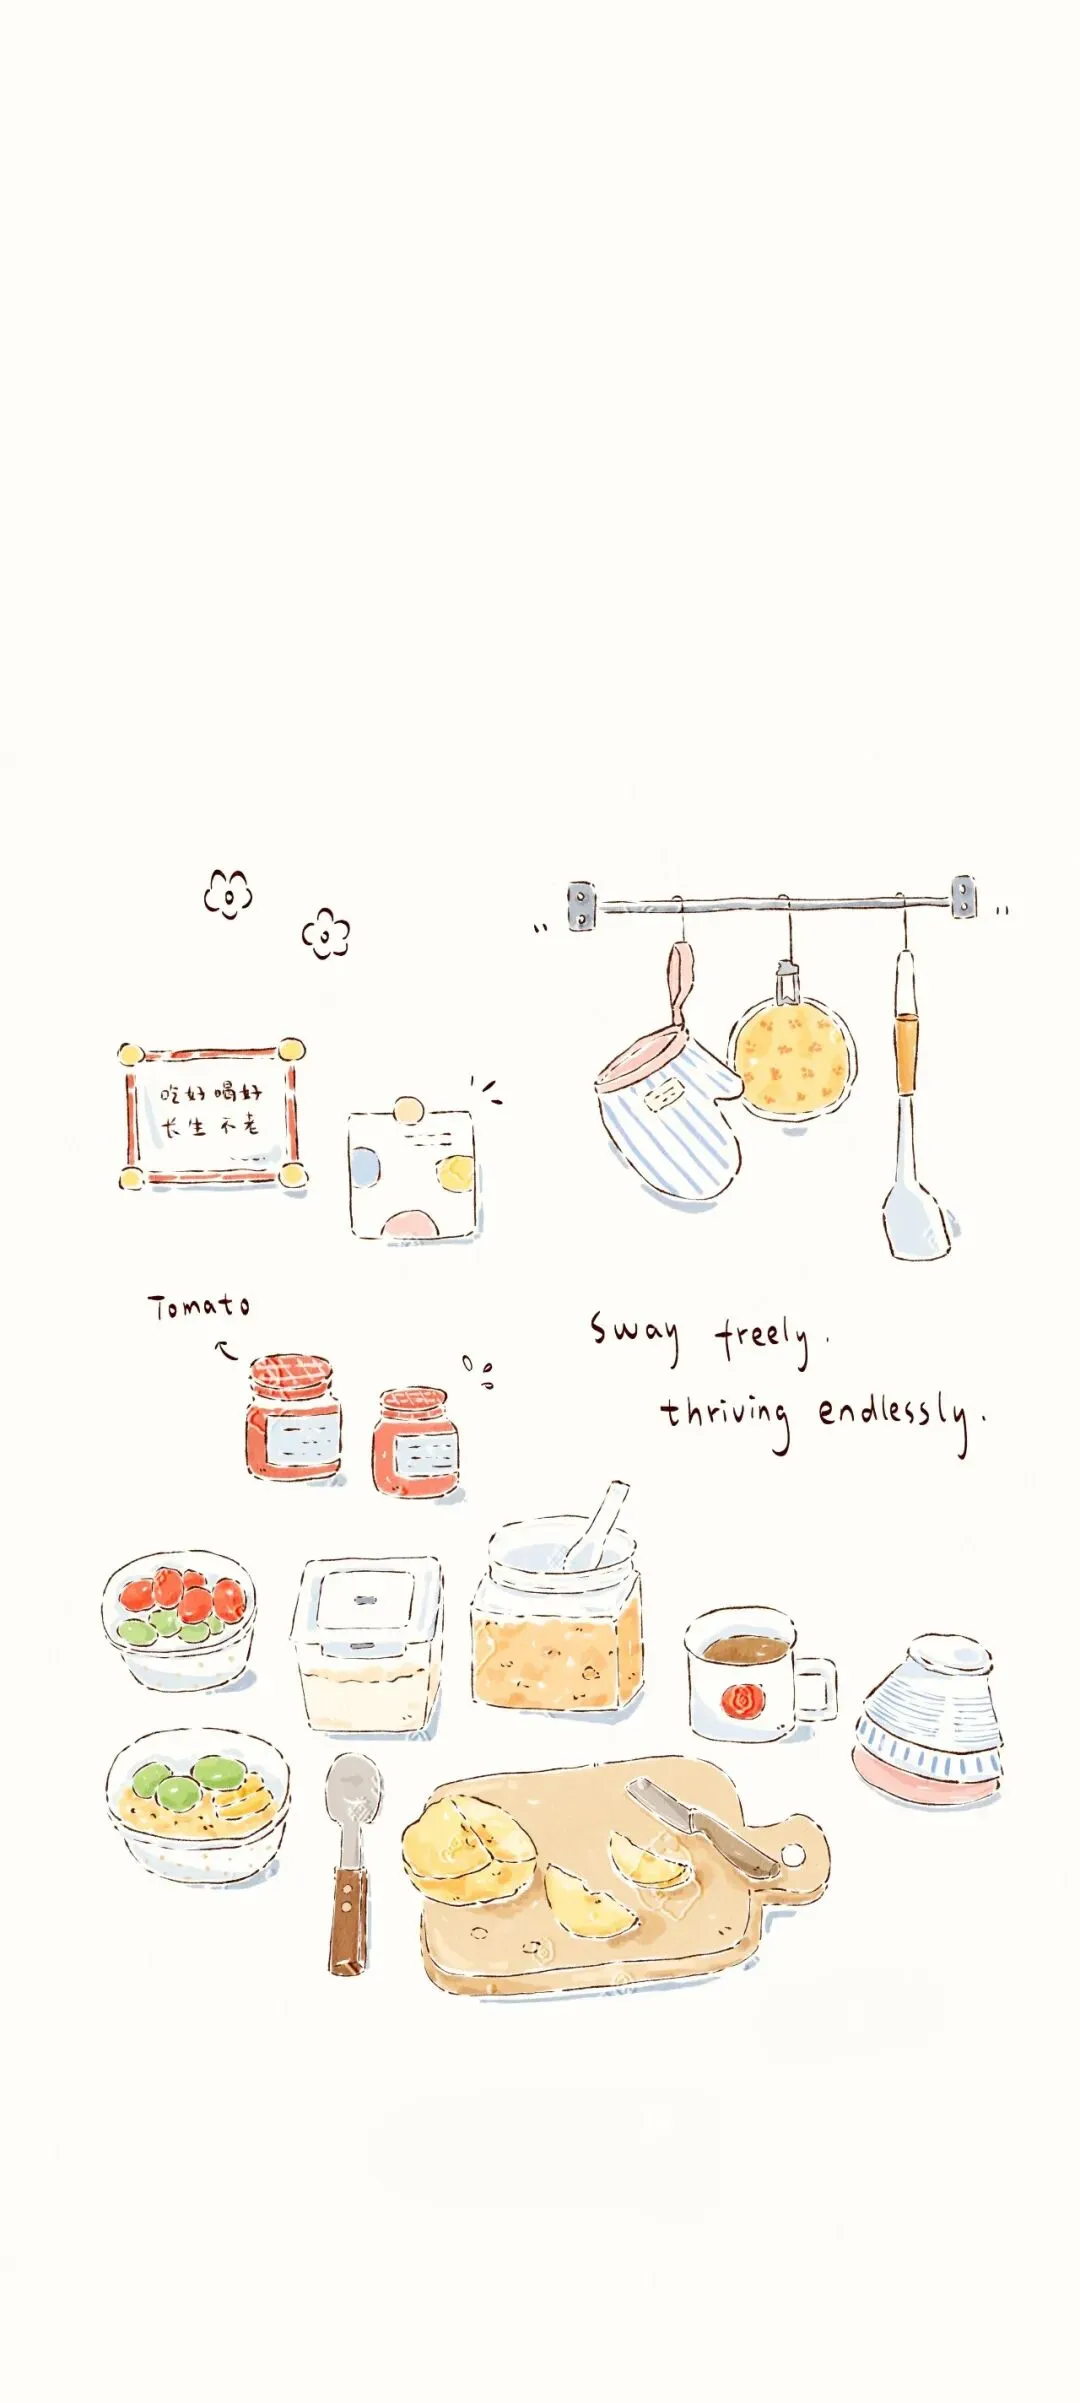 吃好喝好
长生不老
Tomato
Sway freely.
thriving endlessly.